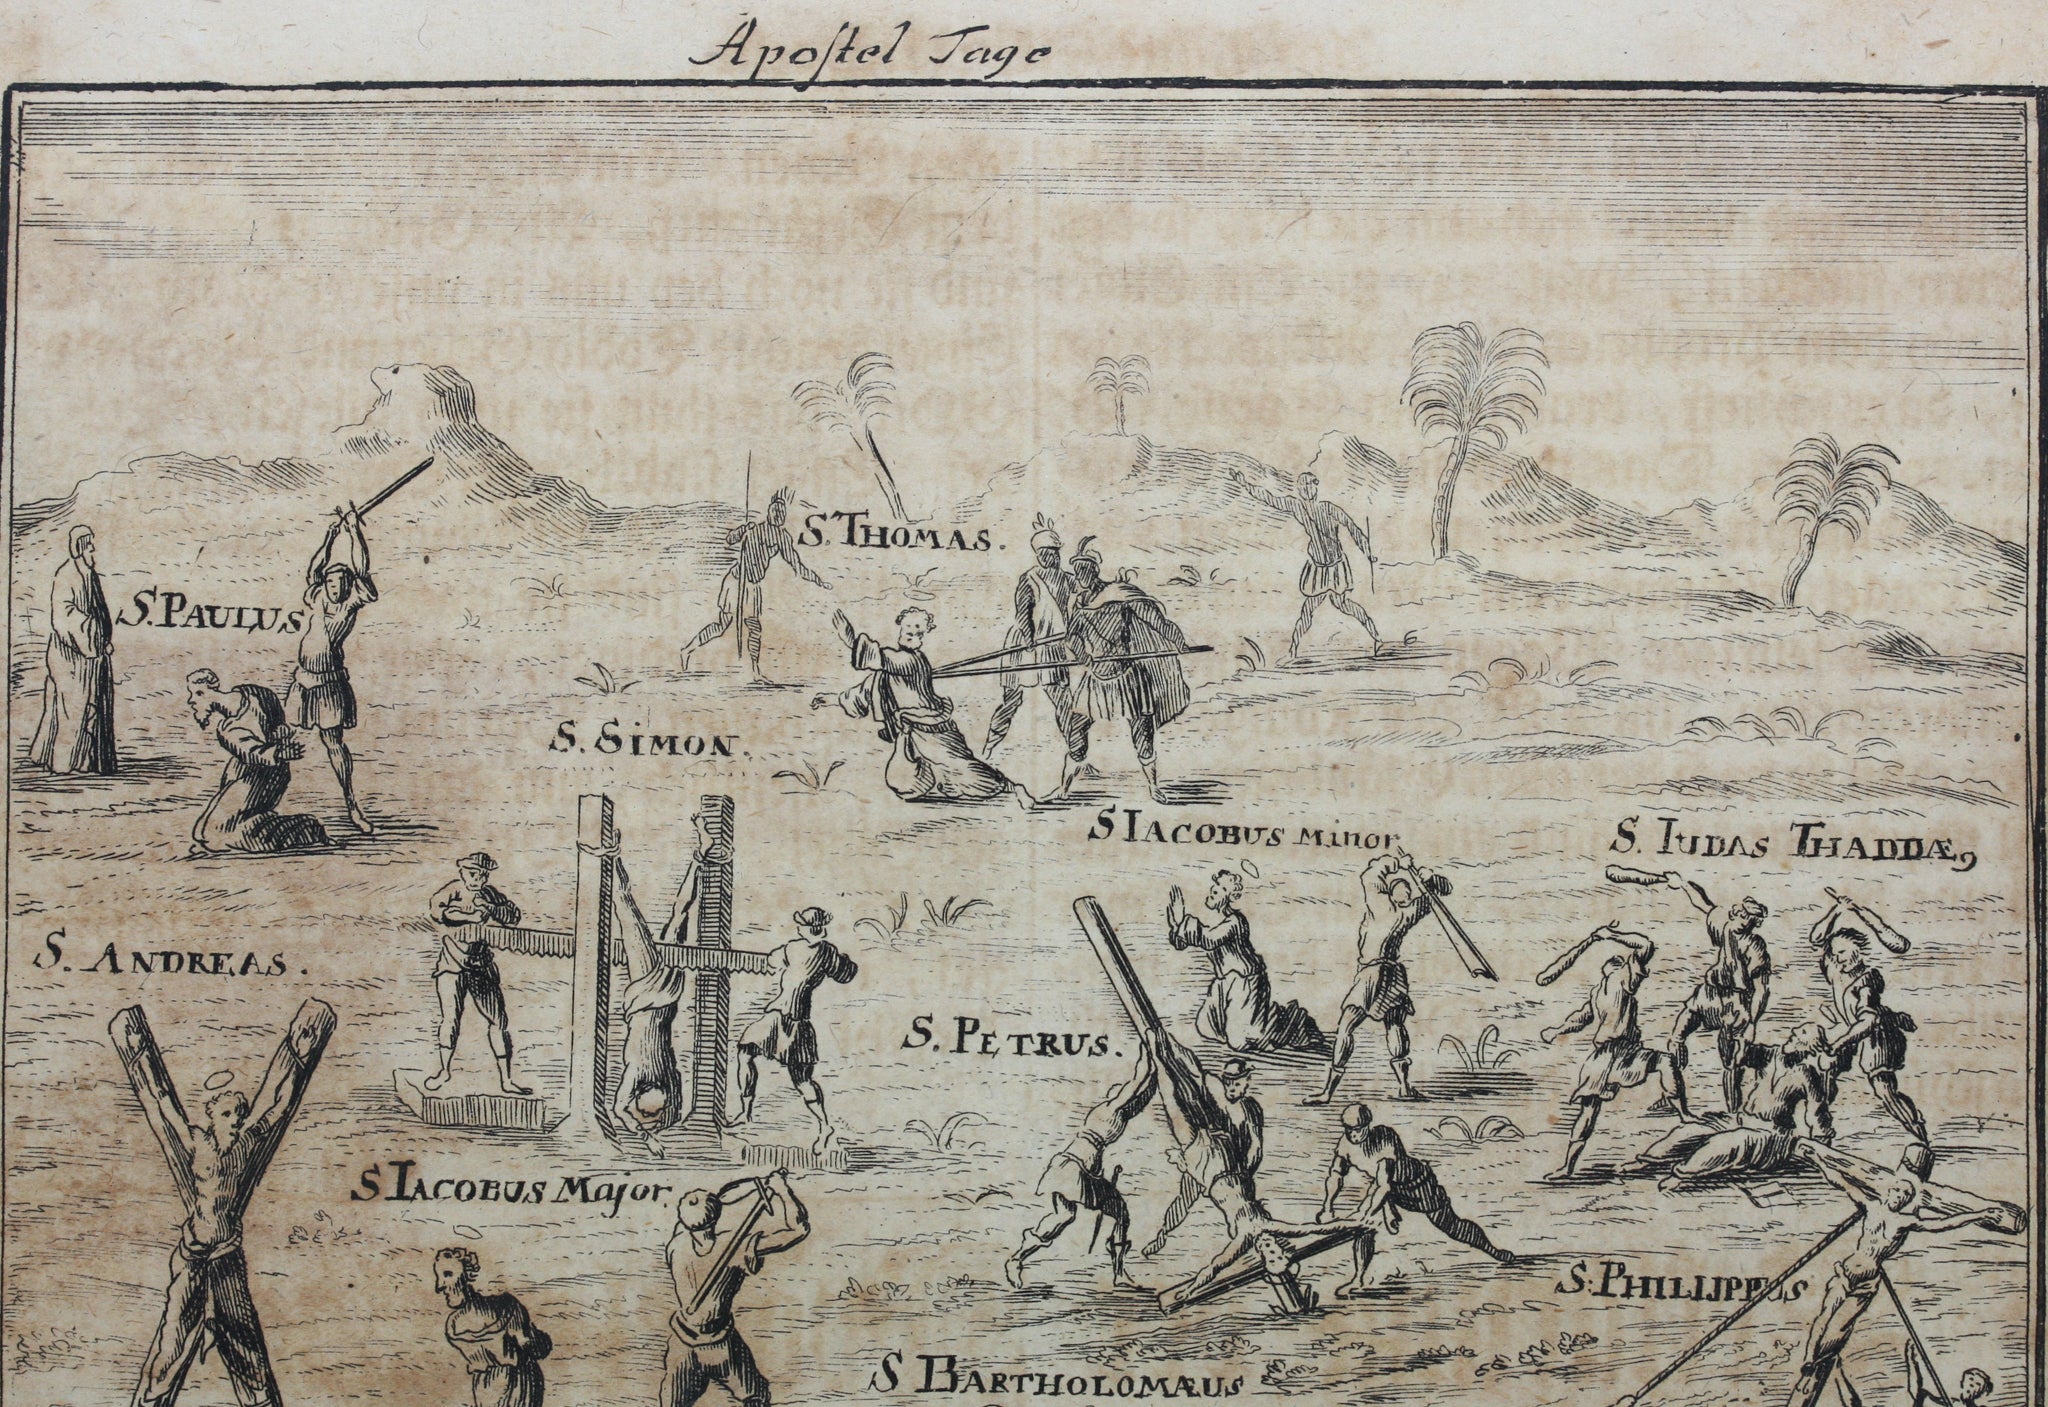 Apostel Tage
S. THOMAS.
S. PAULUS
S. SIMON.
S IACOBUS Minor
S. IUDAS THADDÆ9
S. ANDREAS.
S. PETRUS.
S IACOBUS Major.
S. PHILIPPUS
S BARTHOLOMÆUS